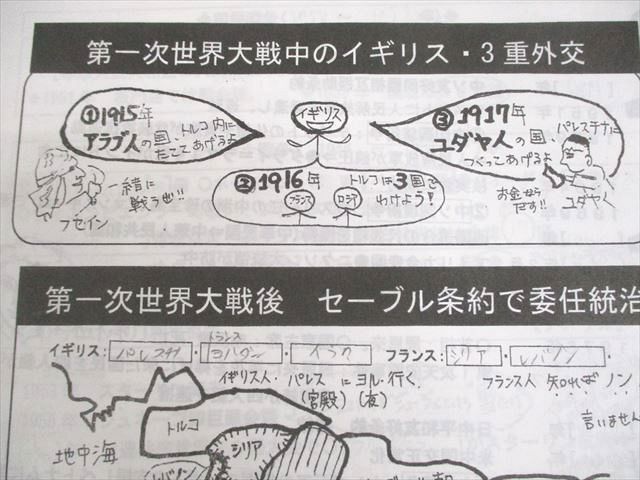 第一次世界大戦中のイギリス・3重外交
①1915年
アラブ人の国、トルコ内に
たててあげるよ
イギリス
③1917年
ユダヤ人の国、パレスチナに
つくってあげるよ
一緒に
戦うぜ!!
フセイン
②1916年
トルコは3国で
わけよう!
フランス
ロシア
お金なら
だす!!
ユダヤ人
第一次世界大戦後 セーブル条約で委任統治
トランス
イギリス: パレスチナ・ヨルダン・イラク フランス: シリア・レバノン
イギリス人・パレス に ヨル・行く.
(宮殿) (夜)
フランス人 知れば ノン
言いません
トルコ
シリア
地中海
レバノン